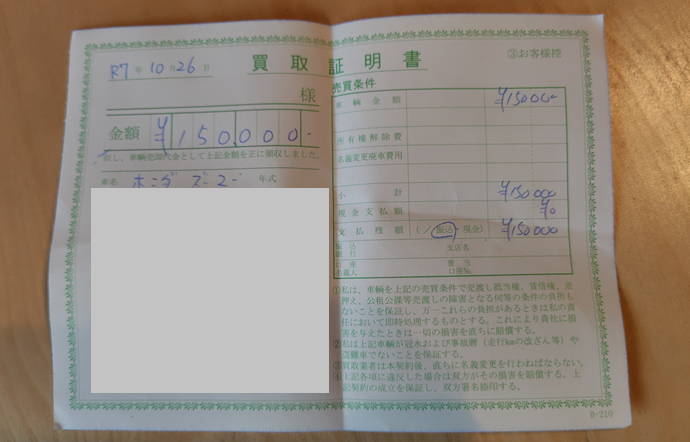 R7年10月26日
買取証明書
③お客様控
様
売買条件
金額 ¥150,000-
但し、車輌売却代金として上記金額を正に領収しました。
車名 ホンダ ズーマー 年式
車輌金額 ¥150000
所有権解除費
名義変更廃車費用
小計 ¥150000
現金支払額 ¥0
支払残額 (/ 振込・現金) ¥150000
振込銀行 支店名
口座名義人 普当口座No.
①私は、車輌を上記の売買条件で売渡し抵当権、質借権、差
押え、公租公課等売渡しの障害となる何等の条件の負担も
ないことを保証し、万一これらの負担があるときは私の責
任において即時処理するものとする。これにより貴社に損
害を与えたときは一切の損害を直ちに賠償する。
②私は上記車輌が冠水および事故暦(走行kmの改ざん等)や
盗難車でないことを保証する。
③買取業者は本契約後、直ちに名義変更を行わねばならない。
④上記各項に違反した場合は双方がその損害を賠償する。上
記契約の成立を保証し、双方署名捺印する。
8-210